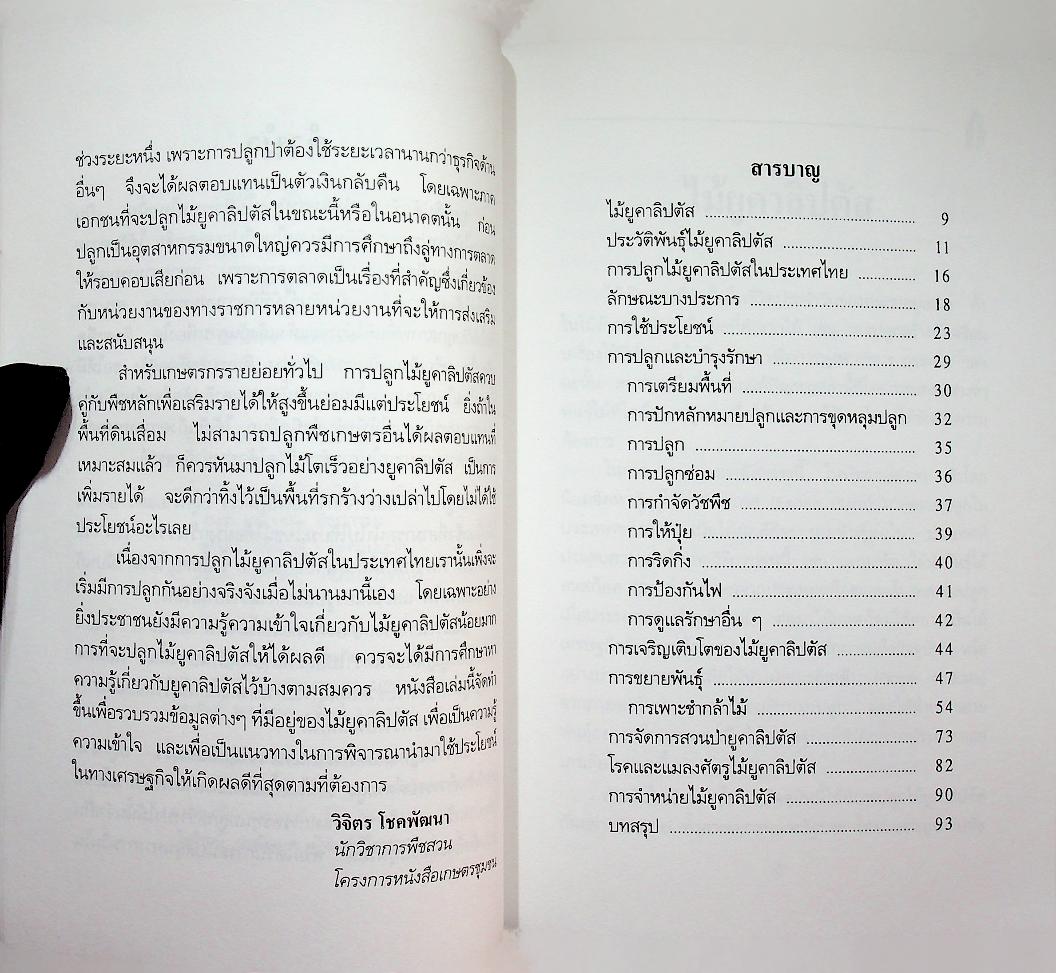 ช่วงระยะหนึ่ง เพราะการปลูกป่าต้องใช้ระยะเวลานานกว่าธุรกิจด้าน
อื่นๆ จึงจะได้ผลตอบแทนเป็นตัวเงินกลับคืน โดยเฉพาะภาค
เอกชนที่จะปลูกไม้ยูคาลิปตัสในขณะนี้หรือในอนาคตนั้น ก่อน
ปลูกเป็นอุตสาหกรรมขนาดใหญ่ควรมีการศึกษาถึงลู่ทางการตลาด
ให้รอบคอบเสียก่อน เพราะการตลาดเป็นเรื่องที่สำคัญซึ่งเกี่ยวข้อง
กับหน่วยงานของทางราชการหลายหน่วยงานที่จะให้การส่งเสริม
และสนับสนุน
สำหรับเกษตรกรรายย่อยทั่วไป การปลูกไม้ยูคาลิปตัสควบ
คู่กับพืชหลักเพื่อเสริมรายได้ให้สูงขึ้นย่อมมีแต่ประโยชน์ ยิ่งถ้าใน
พื้นที่ดินเสื่อม ไม่สามารถปลูกพืชเกษตรอื่นได้ผลตอบแทนที่
เหมาะสมแล้ว ก็ควรหันมาปลูกไม้โตเร็วอย่างยูคาลิปตัส เป็นการ
เพิ่มรายได้ จะดีกว่าทิ้งไว้เป็นพื้นที่รกร้างว่างเปล่าไปโดยไม่ได้ใช้
ประโยชน์อะไรเลย
เนื่องจากการปลูกไม้ยูคาลิปตัสในประเทศไทยเรานั้นเพิ่งจะ
เริ่มมีการปลูกกันอย่างจริงจังเมื่อไม่นานมานี้เอง โดยเฉพาะอย่าง
ยิ่งประชาชนยังมีความรู้ความเข้าใจเกี่ยวกับไม้ยูคาลิปตัสน้อยมาก
การที่จะปลูกไม้ยูคาลิปตัสให้ได้ผลดี ควรจะได้มีการศึกษาหา
ความรู้เกี่ยวกับยูคาลิปตัสไว้บ้างตามสมควร หนังสือเล่มนี้จัดทำ
ขึ้นเพื่อรวบรวมข้อมูลต่างๆ ที่มีอยู่ของไม้ยูคาลิปตัส เพื่อเป็นความรู้
ความเข้าใจ และเพื่อเป็นแนวทางในการพิจารณานำมาใช้ประโยชน์
ในทางเศรษฐกิจให้เกิดผลดีที่สุดตามที่ต้องการ
วิจิตร โชคพัฒนา
นักวิชาการพืชสวน
โครงการหนังสือเกษตรชุมชน
สารบาญ
ไม้ยูคาลิปตัส ........................................ 9
ประวัติพันธุ์ไม้ยูคาลิปตัส ........................... 11
การปลูกไม้ยูคาลิปตัสในประเทศไทย ............ 16
ลักษณะบางประการ ................................. 18
การใช้ประโยชน์ ...................................... 23
การปลูกและบำรุงรักษา ............................. 29
การเตรียมพื้นที่ ..................................... 30
การปักหลักหมายปลูกและการขุดหลุมปลูก 32
การปลูก ............................................. 35
การปลูกซ่อม ........................................ 36
การกำจัดวัชพืช ..................................... 37
การให้ปุ๋ย ........................................... 39
การริดกิ่ง ............................................ 40
การป้องกันไฟ ...................................... 41
การดูแลรักษาอื่น ๆ ............................... 42
การเจริญเติบโตของไม้ยูคาลิปตัส ................ 44
การขยายพันธุ์ ....................................... 47
การเพาะชำกล้าไม้ .................................. 54
การจัดการสวนป่ายูคาลิปตัส ....................... 73
โรคและแมลงศัตรูไม้ยูคาลิปตัส .................... 82
การจำหน่ายไม้ยูคาลิปตัส .......................... 90
บทสรุป ................................................ 93